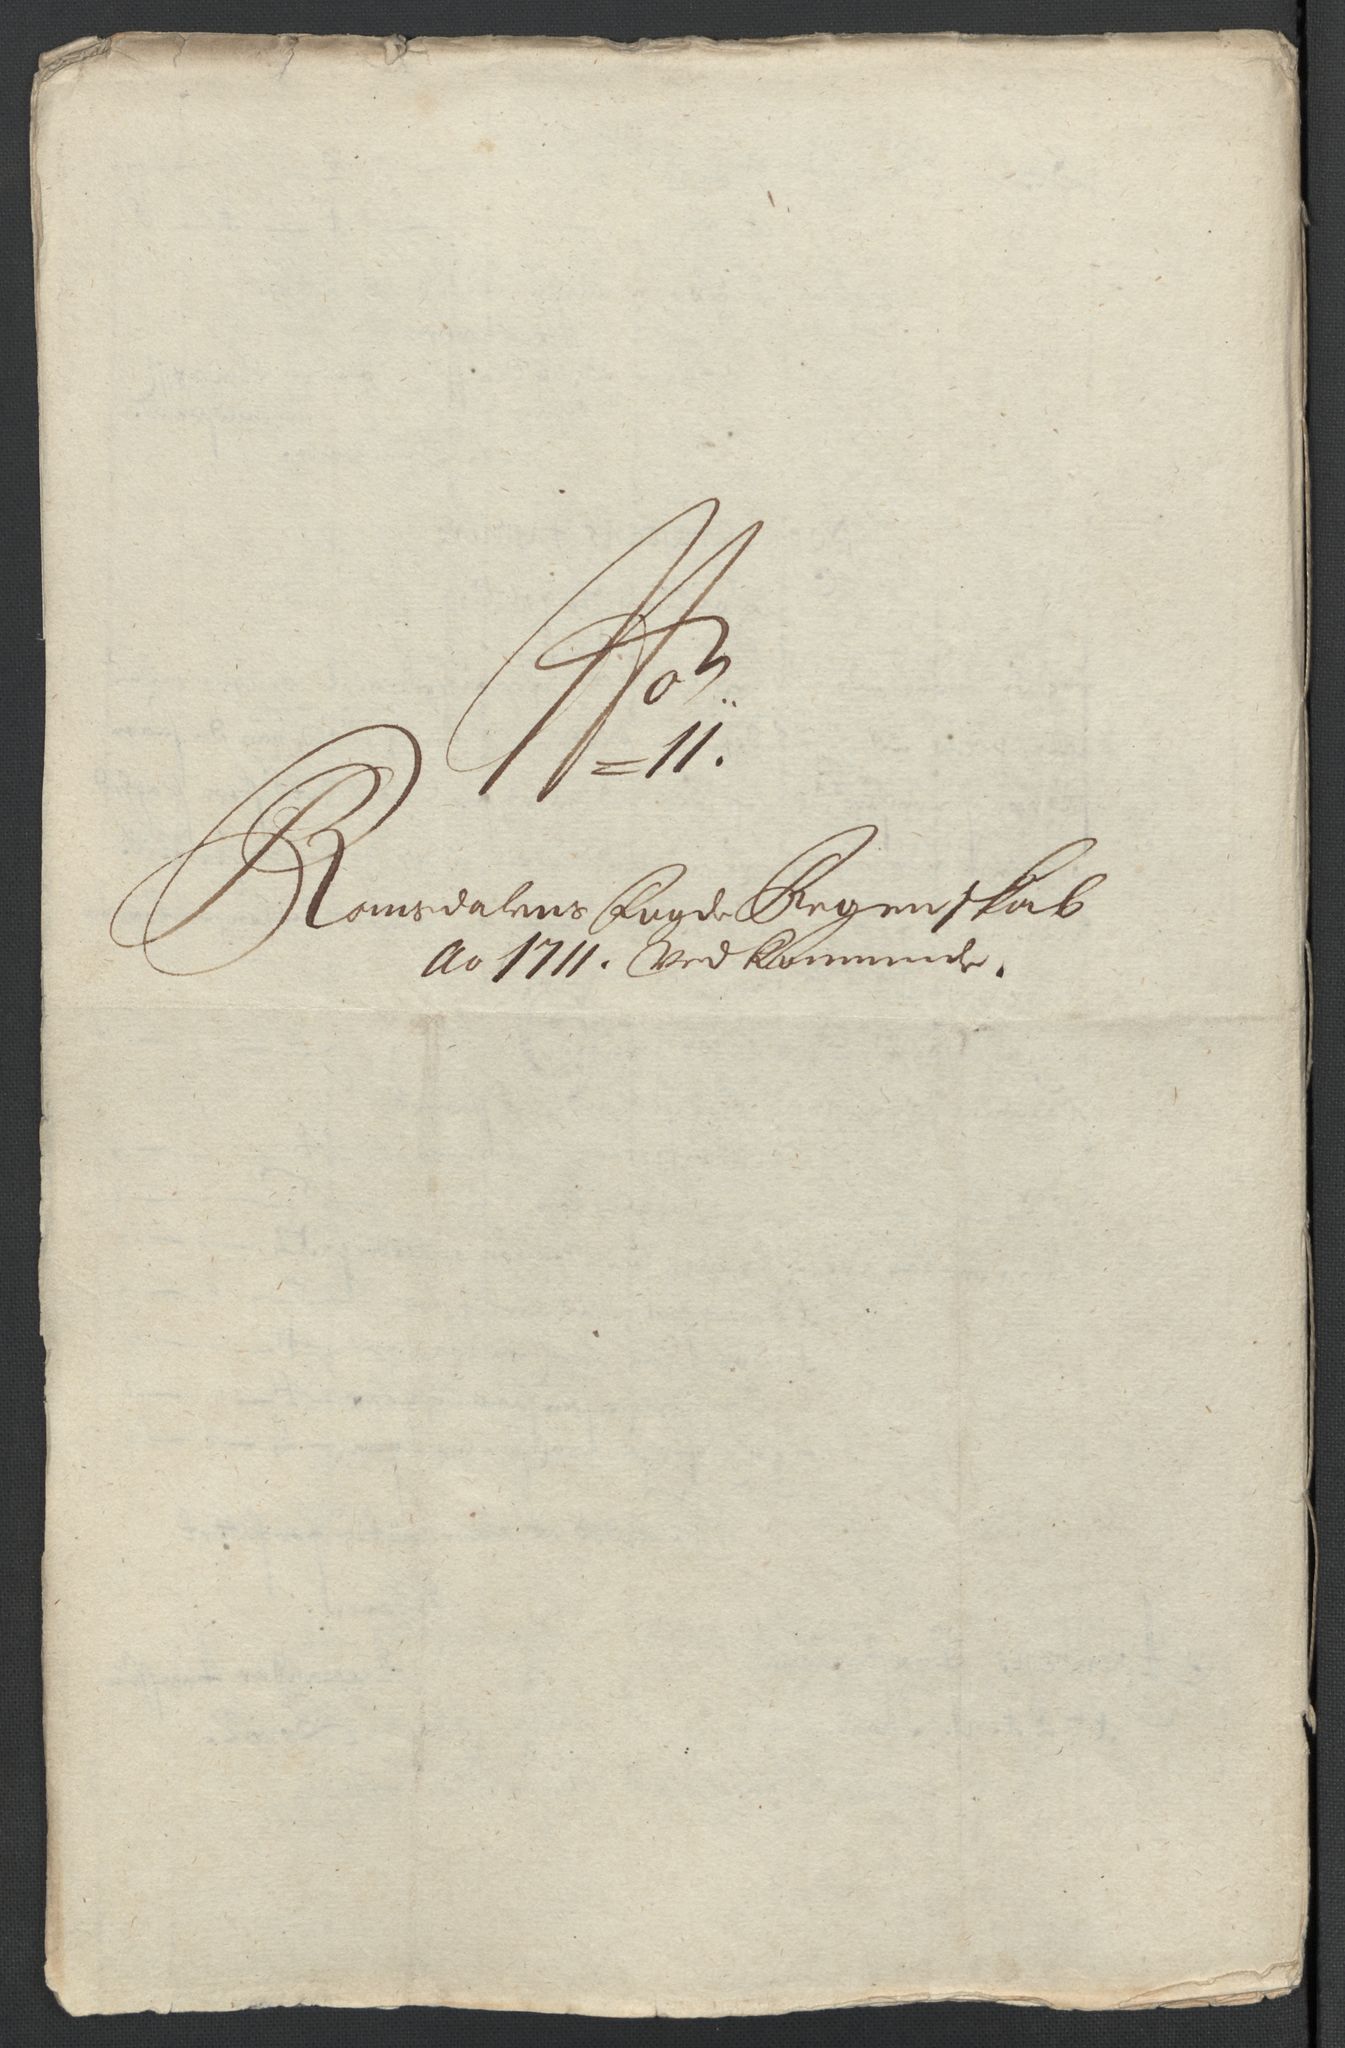 No
= 11.
Romsdalens Fogde Regenskab
Ao 1711. Vedkommende.